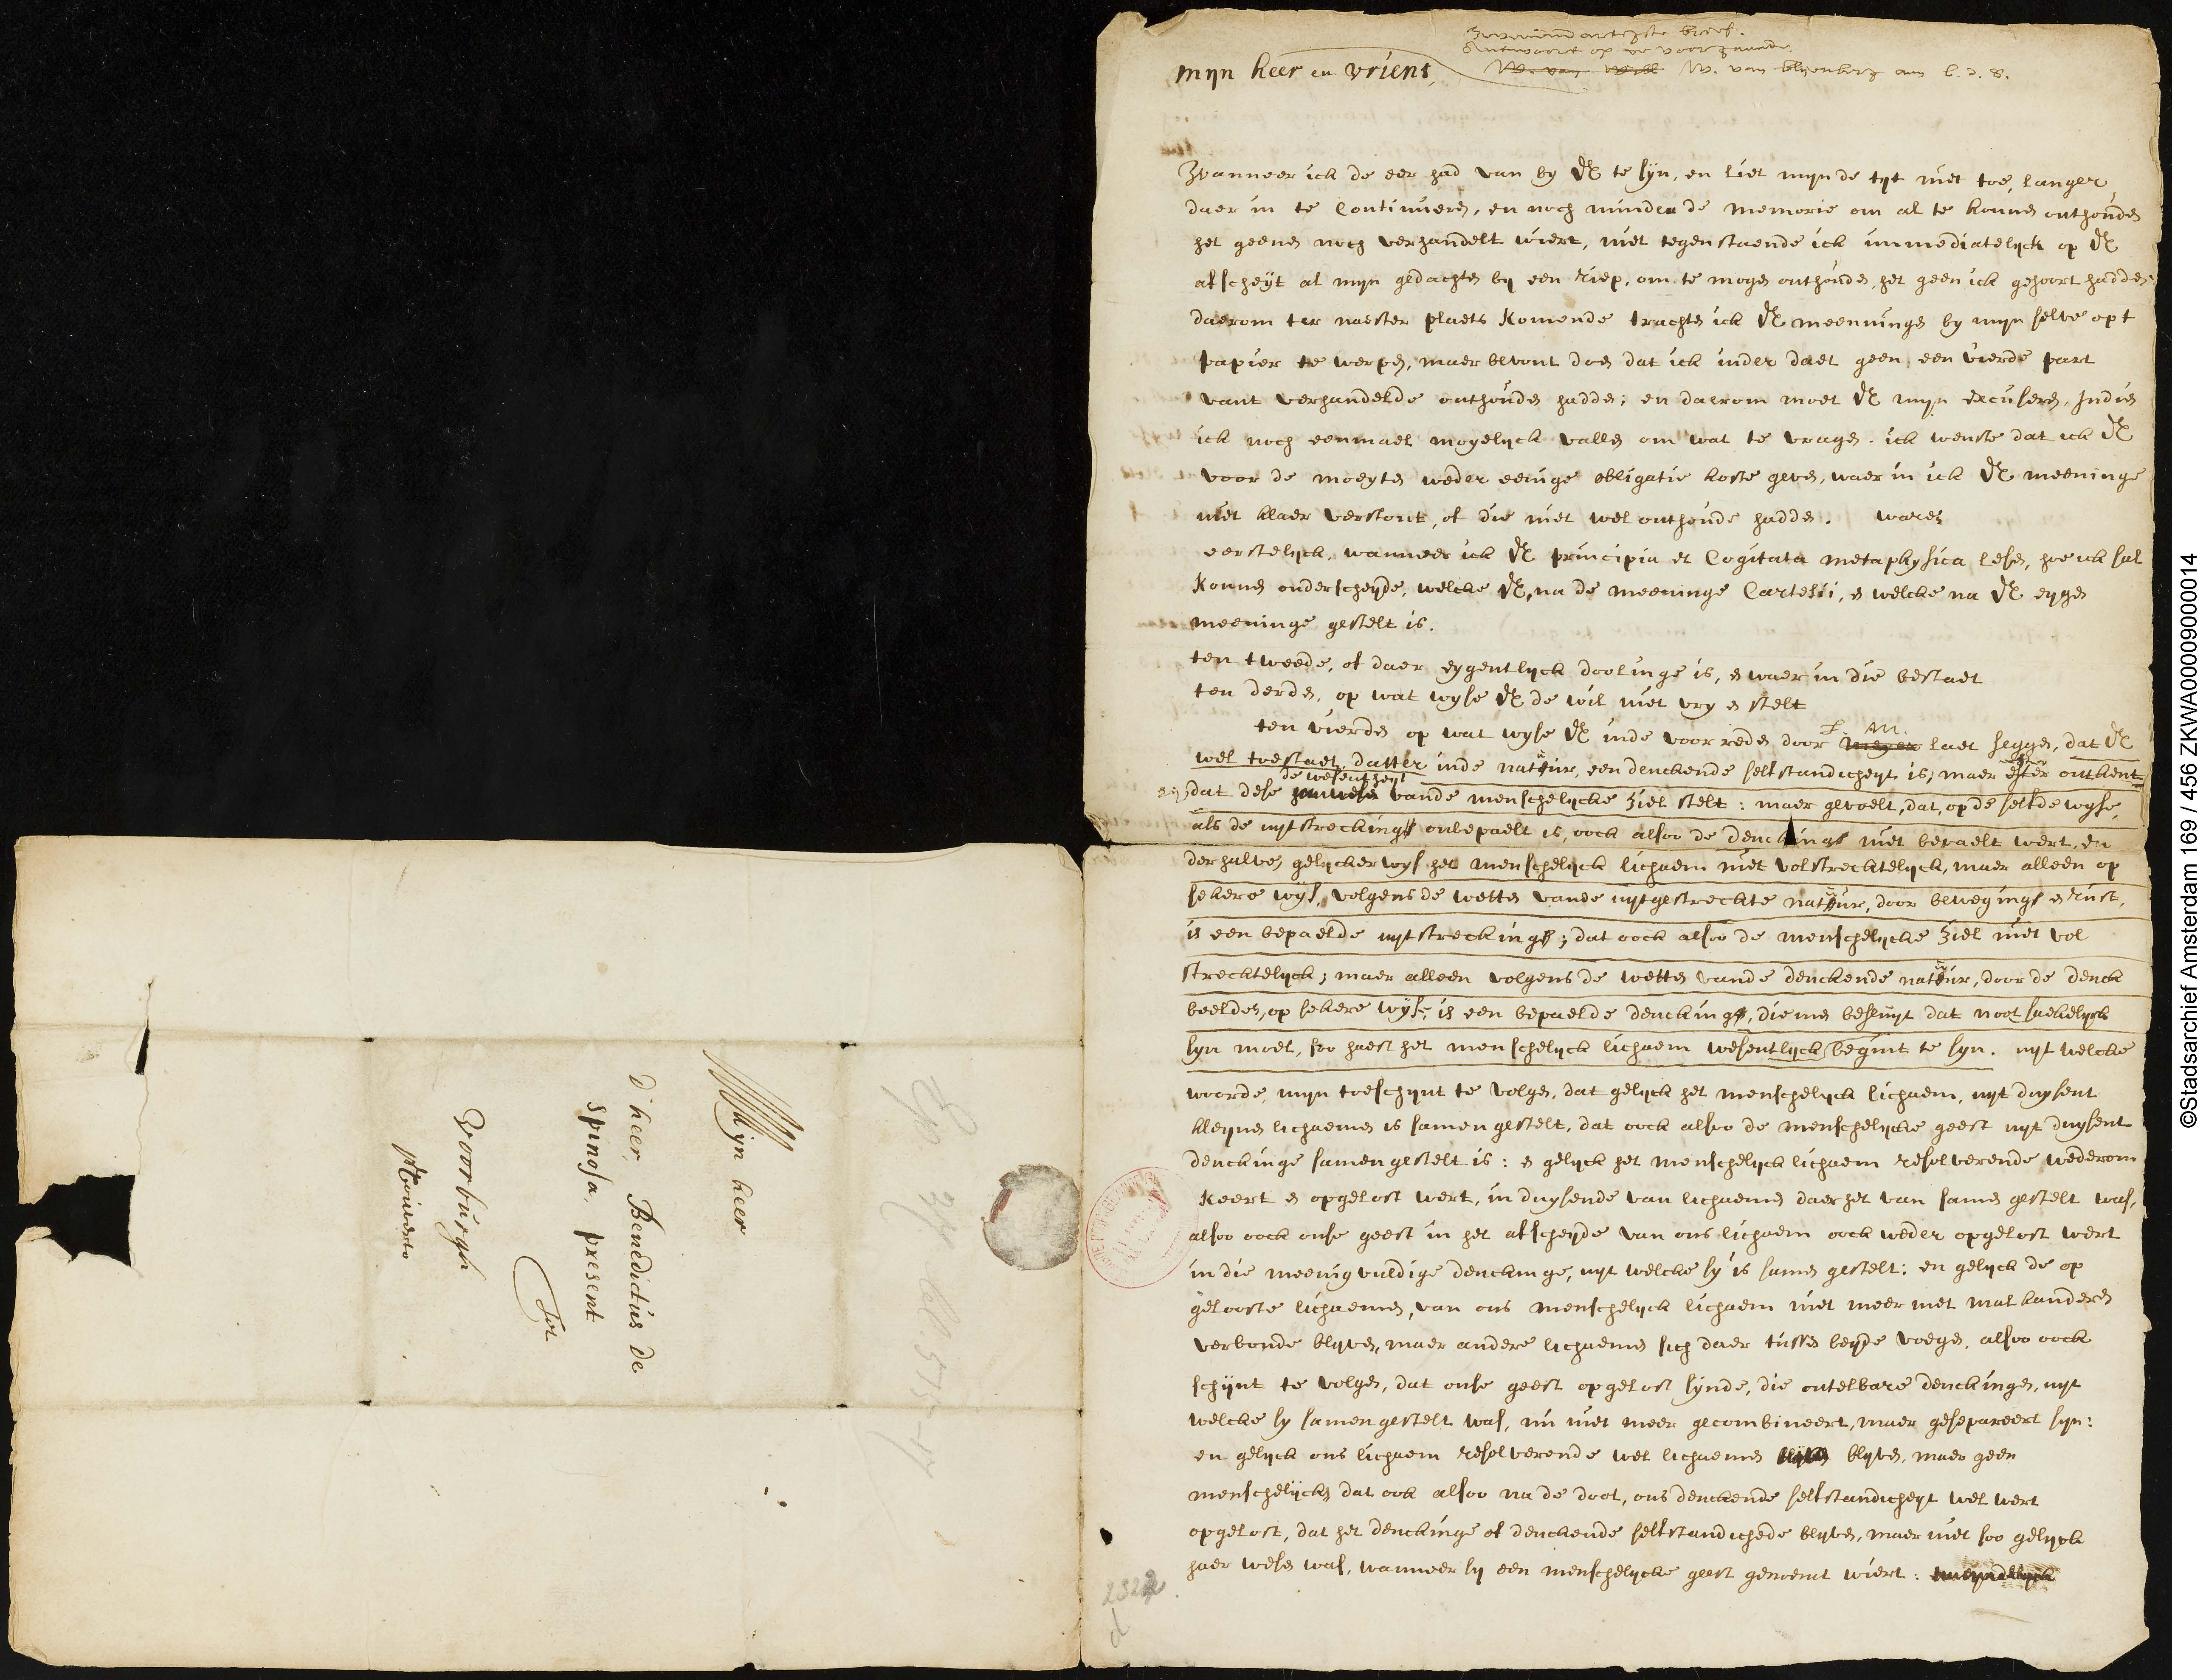 Mijn heer
d'heer, Benedictus de
spinosa, present
Tot
Voorburgh
Ep. 24 bl. 515-17
mijn heer en vrient,
antwoort op de voorgaande.
W. van W. van blyenberg aan B. d. S.
Wanneer ick de eer had van by UE te sijn, en liet mijn de tijt niet toe, langer
daer in te continueren, en noch minder de memorie om al te konnen onthouden
het geene noch verhandelt wiert, niet tegenstaende ick immediatelijck op UE
afscheijt al mijn gedachten bij een riep, om te mogen onthouden, het geen ick gehoort hadde,
daerom ter naester plaets komende trachten ick UE meeninge by mijn selve opt
papier te werpen, maer bevont doen dat ick inder daet geen een vierde part
vant verhandelde onthouden hadde; en daerom moet UE mijn excuseren, Indien
ick noch eenmael moyelijck valle om wat te vragen. ick wenste dat ick UE
voor de moeyten weder eenige obligatie koste geven, waer in ick UE meeninge
niet klaer verstont, of die niet wel onthoude hadde. waren
eerstelijck, wanneer ick UE principia et Cogitata metaphysica lese, hoe ick sal
konnen onderscheyde, welcke UE, na de meeninge Cartesii, en welcke na UE eygen
meeninge gestelt is.
ten tweede, of daer eygentlijck doolinge is, en waer in die bestaet
ten derden, op wat wyse UE de wil niet vry en stelt
ten vierden op wat wyse UE inde voorreden door L. M. laet seggen, dat UE
wel toestaet, datter inde natuur, een denckende selfstandicheyt is; maer echter ontkent
de wesentheyt
dat dese vande menschelijcke ziel stelt: maer gevoelt, dat, op de selfde wyse,
als de uytstrecking onbepaelt is, oock alsoo de dencking niet bepaelt wert, en
derhalven gelijckerwys het menschelijck lichaem niet volstrecktelijck, maer alleen op
sekere wijs, volgens de wetten vande uytgestreckte natuur, door beweging en rust,
is een bepaelde uytstrecking; dat oock alsoo de menschelijcke ziel niet vol
strecktelijck; maer alleen volgens de wetten vande denckende natuur, door de denck
beelden, op sekere wijse, is een bepaelde dencking, die men besluyt dat nootsaekelijck
syn moet, soo haest het menschelijck lichaem wesentlijck begint te syn. uyt welcke
woorde, mijn toeschijnt te volgen, dat gelijck het menschelijck lichaem, uyt duysent
kleyne lichaemen is samen gestelt, dat oock alsoo de menschelijcke geest uyt duysent
denckinge samen gestelt is: en gelijck het menschelijck lichaem resolverende wederom
keert en opgelost wert, in duysende van lichaemen daer het van samen gestelt was,
alsoo oock onse geest in het afscheyde van ons lichaem oock weder opgelost wert
in die meenigvuldige denckinge, uyt welcke sy is samen gestelt: en gelijck de op
gelooste lichaemen, van ons menschelijck lichaem niet meer met malkanderen
verbonde blyven, maer andere lichaemen sich daer tussen beyde voegen, alsoo oock
schijnt te volgen, dat onse geest opgelost sijnde, die ontelbare denckingen, uyt
welcke sy samen gestelt was, nu niet meer gecombineert, maer gesepareert syn:
en gelijck ons lichaem resolverende wel lichaemen blyven, maer geen
menschelijcke, dat ook alsoo na de doot, ons denckende selfstandicheyt wel wert
opgelost, dat het denckinge of denckende selfstandichede blyven, maer niet soo gelijck
haer wesen was, wanneer sy een menschelijcke geest genoemt wiert:
2322
d
©Stadsarchief Amsterdam 169 / 456 ZKWA00009000014